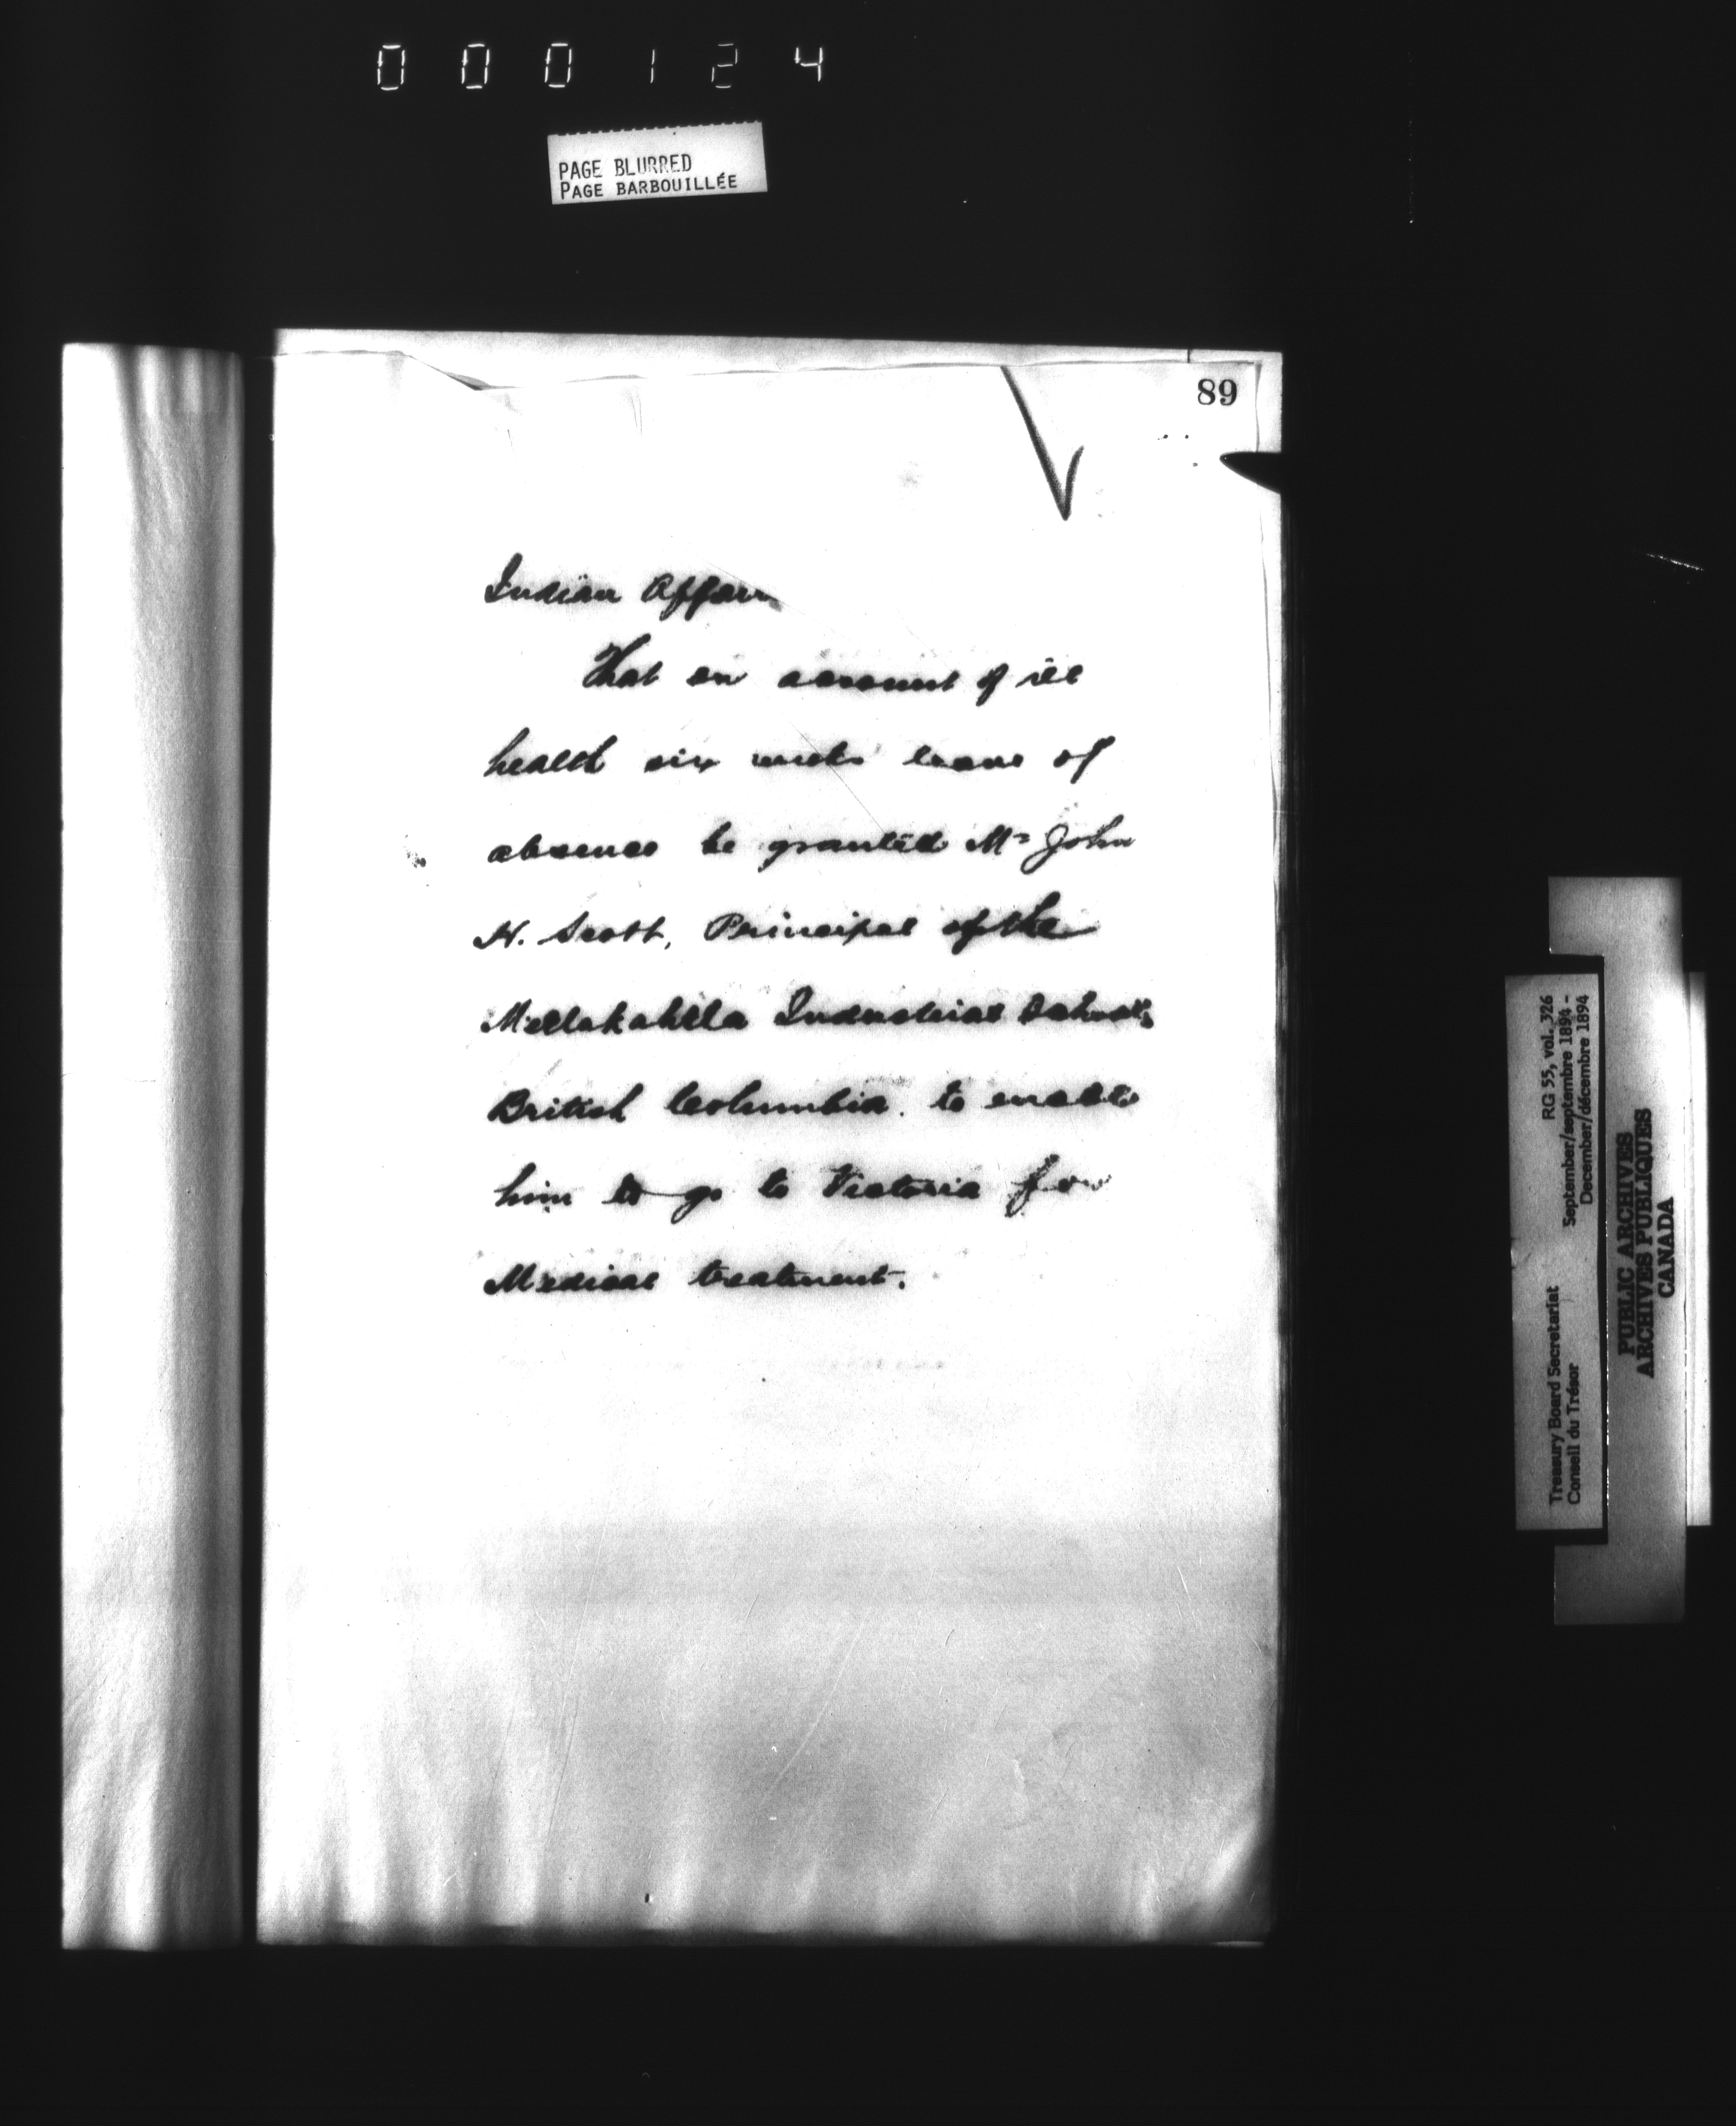 000124
PAGE BLURRED
PAGE BARBOUILLÉE
89
Indian Affairs
That on account of ill
health six weeks leave of
absence be granted Mr John
R. Scott, Principal of the
Metlakahtla Industrial School,
British Columbia. to enable
him to go to Victoria for
Medical treatment.
RG 55, vol. 326
September/septembre 1894 -
December/décembre 1894
Treasury Board Secretariat
Conseil du Trésor
PUBLIC ARCHIVES
ARCHIVES PUBLIQUES
CANADA